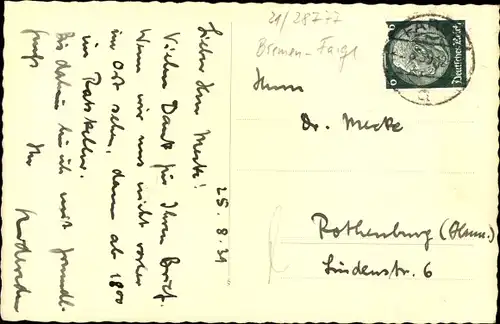 25. 8. 39
Lieber Herr Merk!
Vielen Dank für Ihren Brief.
Wenn wir uns nicht vorher
im Ort sehen, dann ab 1800
im Ratskeller.
Bis dahin bin ich mit freundl.
Gruß Ihr
21/28777
Bremen-Farge
Deutsches Reich
Herrn
Dr. Merke
Rothenburg (Hann.)
Lindenstr. 6